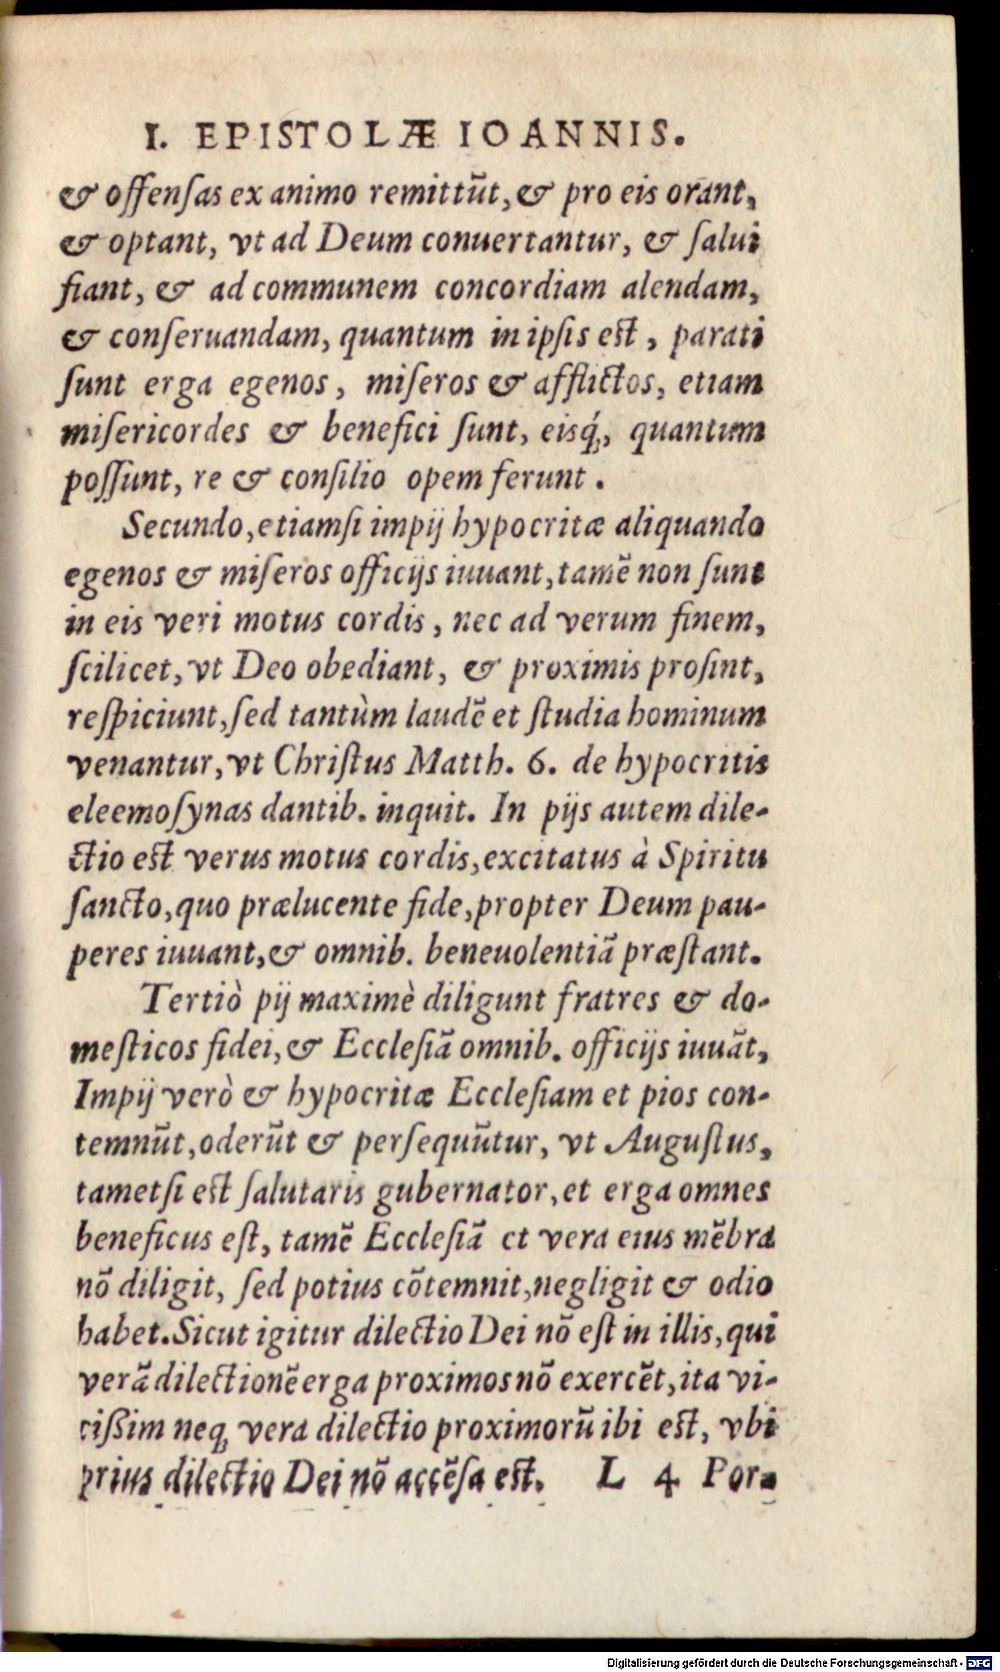 I. EPISTOLÆ IOANNIS.
& offenſas ex animo remittūt, & pro eis orant,
& optant, vt ad Deum conuertantur, & ſalui
fiant, & ad communem concordiam alendam,
& conſeruandam, quantum in ipſis eſt, parati
ſunt erga egenos, miſeros & afflictos, etiam
miſericordes & benefici ſunt, eisq́;, quantum
poſſunt, re & conſilio opem ferunt.
Secundo, etiamſi impij hypocritæ aliquando
egenos & miſeros officijs iuuant, tamē non ſunt
in eis veri motus cordis, nec ad verum finem,
ſcilicet, vt Deo obediant, & proximis proſint,
reſpiciunt, ſed tantùm laudē et ſtudia hominum
venantur, vt Chriſtus Matth. 6. de hypocritis
eleemoſynas dantib. inquit. In pijs autem dile-
ctio eſt verus motus cordis, excitatus à Spiritu
ſancto, quo prælucente fide, propter Deum pau-
peres iuuant, & omnib. beneuolentiā præſtant.
Tertiò pij maximè diligunt fratres & do-
meſticos fidei, & Eccleſiā omnib. officijs iuuāt,
Impij verò & hypocritæ Eccleſiam et pios con-
temnūt, oderūt & perſequūtur, vt Auguſtus,
tametſi eſt ſalutaris gubernator, et erga omnes
beneficus eſt, tamē Eccleſiā et vera eius mēbra
nō diligit, ſed potius cōtemnit, negligit & odio
habet. Sicut igitur dilectio Dei nō eſt in illis, qui
verā dilectionē erga proximos nō exercēt, ita vi-
ciſſim neq; vera dilectio proximorū ibi eſt, vbi
prius dilectio Dei nō accēſa eſt. L 4 Por-
Digitalisierung gefördert durch die Deutsche Forschungsgemeinschaft - DFG